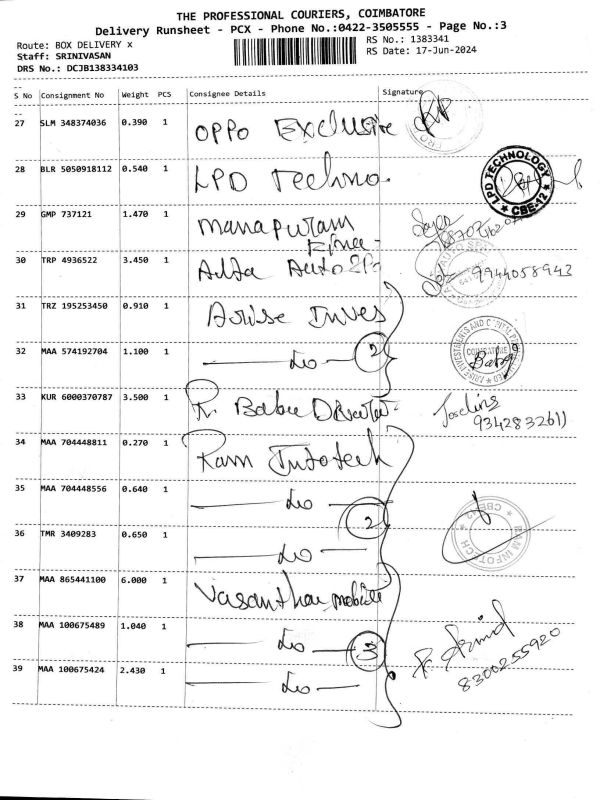 THE PROFESSIONAL COURIERS, COIMBATORE
Delivery Runsheet - PCX - Phone No.:0422-3505555 - Page No.:3
Route: BOX DELIVERY x
RS No.: 1383341
Staff: SRINIVASAN
RS Date: 17-Jun-2024
DRS No.: DCJB138334103
S No Consignment No Weight PCS Consignee Details Signature
27 SLM 348374036 0.390 1 OPPO Exclusive
28 BLR 5050918112 0.540 1 LPD Techno.
LPD TECHNOLOGY
CBE-12
29 GMP 737121 1.470 1 manapuram
30 TRP 4936522 3.450 1 Auto 9944058943
31 TRZ 195253450 0.910 1 Arise Inves
32 MAA 574192704 1.100 1 do 2
COIMBATORE
Babu
33 KUR 6000370787 3.500 1 Babu
34 MAA 704448811 0.270 1 Ram Infotech
35 MAA 704448556 0.640 1 do
2
36 TMR 3409283 0.650 1 do
RAM INFOTECH
CBE-12
37 MAA 865441100 6.000 1 Vasanthar mobile
38 MAA 100675489 1.040 1 do 3
8300255920
39 MAA 100675424 2.430 1 do